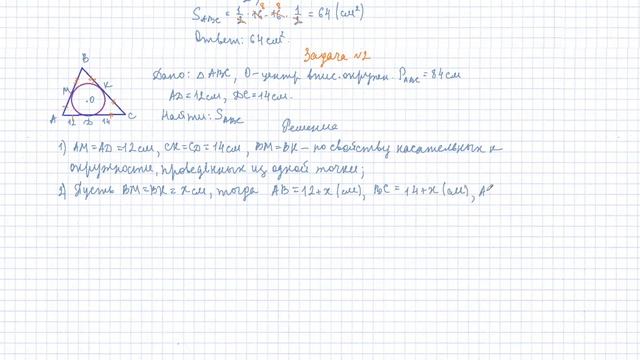 S_ABC = 1/2 · 16 · 16 · 1/2 = 64 (см²)
8 8
Ответ: 64 см².
Задача №2
Дано: △ABC, O – центр впис. окружн. P_ABC = 84 см
AD = 12 см, DC = 14 см.
Найти: S_ABC
Решение
B
M
K
O
A
12
D
14
C
1) AM = AD = 12 см, CK = CD = 14 см, BM = BK – по свойству касательных к
окружности, проведённых из одной точки;
2) Пусть BM = BK = x см, тогда AB = 12 + x (см), BC = 14 + x (см), A